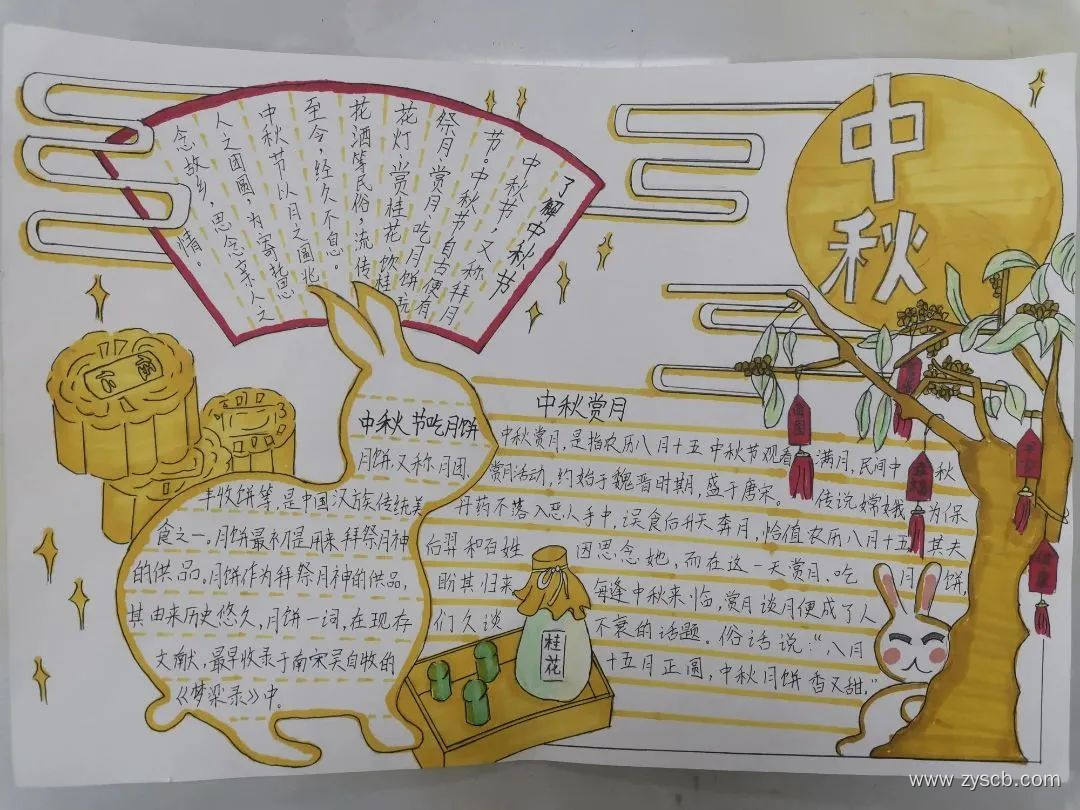 中秋
了解中秋节
中秋节,又称拜月
节。中秋节自古便有
祭月、赏月、吃月饼、玩
花灯、赏桂花、饮桂
花酒等民俗,流传
至今,经久不息。
中秋节以月之圆兆
人之团圆,为寄托思
念故乡,思念亲人之
情。
中秋节吃月饼
月饼,又称月团、
丰收饼等,是中国汉族传统美
食之一。月饼最初是用来拜祭月神
的供品。月饼作为拜祭月神的供品,
其由来历史悠久,月饼一词,在现存
文献,最早收录于南宋吴自牧的
《梦梁录》中。
中秋赏月
中秋赏月,是指农历八月十五中秋节观看满月,民间中秋
赏月活动,约始于魏晋时期,盛于唐宋。传说嫦娥为保
丹药不落入恶人手中,误食后升天奔月,恰值农历八月十五,其夫
后羿和百姓因思念她,而在这一天赏月、吃月饼,
盼其归来。每逢中秋来临,赏月谈月便成了人
们久谈不衰的话题。俗话说:“八月
十五月正圆,中秋月饼香又甜。”
桂花
www.zyscb.com